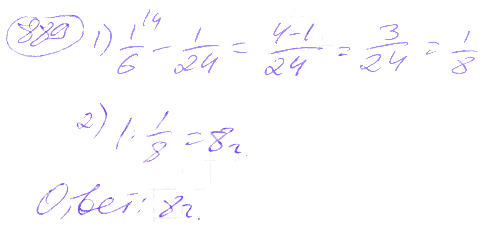 889 1) 1/6 ^(4 - 1/24 = 4-1/24 = 3/24 = 1/8
2) 1 : 1/8 = 8г.
Ответ: 8г.